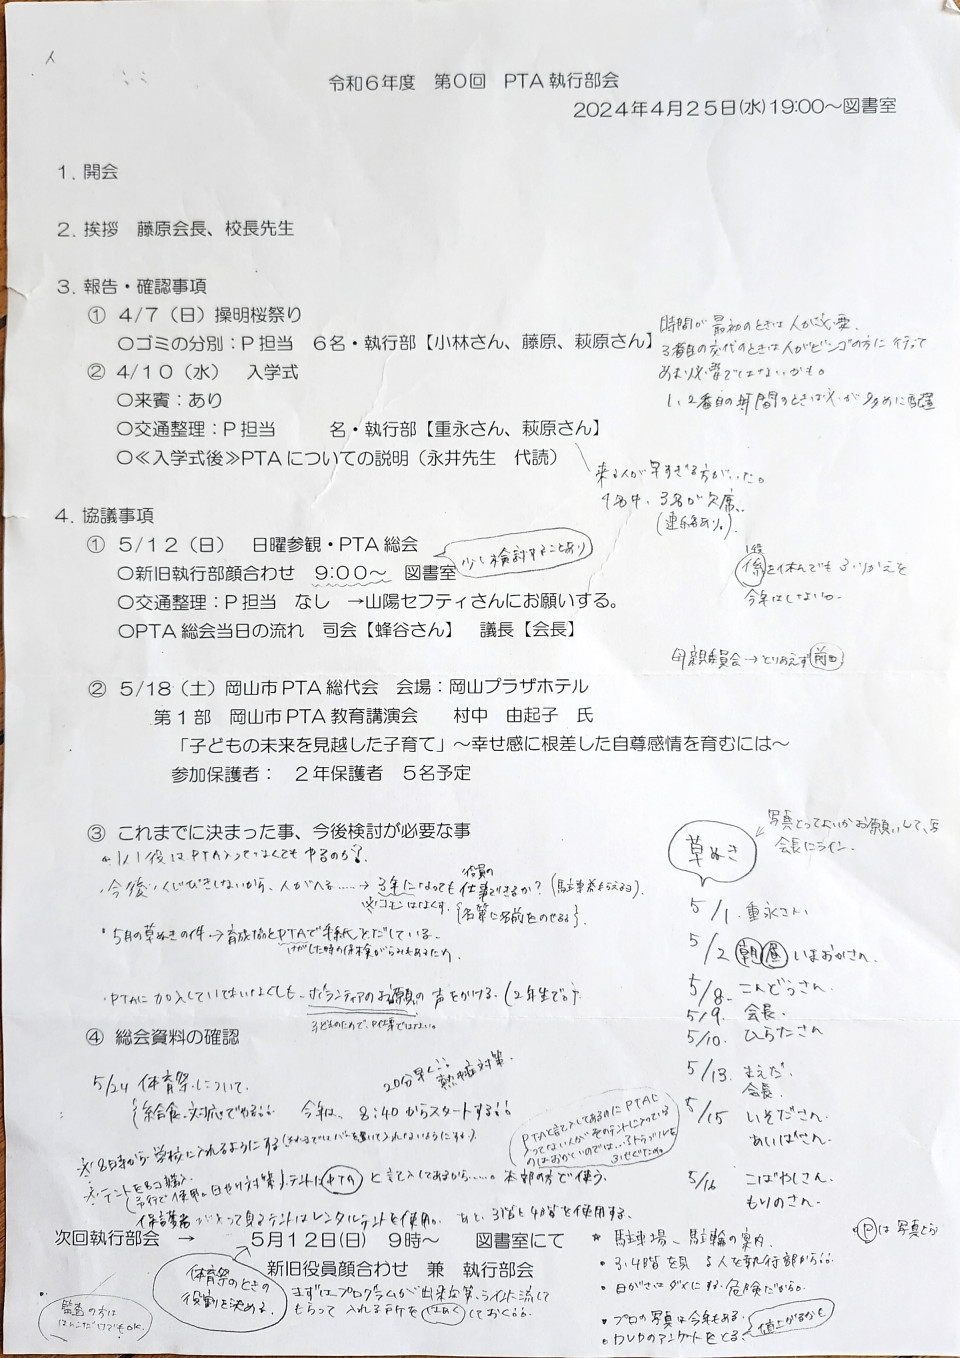 令和6年度　第0回　PTA 執行部会
2024年4月25日(水)19:00～図書室
1．開会
2．挨拶　藤原会長、校長先生
3．報告・確認事項
① 4/7（日）操明桜祭り
○ゴミの分別：P担当　6名・執行部【小林さん、藤原、萩原さん】
時間が最初のときは人が必要.
3番目の交代のときは人がビンゴの方に行って
あまり必要ではないかも。
1、2番目の時間のときは人が多めに配置
② 4/10（水）　入学式
○来賓：あり
○交通整理：P担当　　　名・執行部【重永さん、萩原さん】
○≪入学式後≫PTAについての説明（永井先生　代読）
来る人が早すぎる方がいた。
9名中、3名が欠席..
(連絡あり。)
4．協議事項
① 5/12（日）　日曜参観・PTA総会
少し検討することあり
○新旧執行部顔合わせ　9:00～　図書室
1役
係を休んでもふりかえを
今年はしない。
○交通整理：P担当　なし　→山陽セフティさんにお願いする。
○PTA総会当日の流れ　司会【蜂谷さん】　議長【会長】
母親委員会→とりあえず前田
② 5/18（土）岡山市PTA総代会　会場：岡山プラザホテル
第1部　岡山市PTA教育講演会　　村中　由起子　氏
「子どもの未来を見越した子育て」～幸せ感に根差した自尊感情を育むには～
参加保護者：　2年保護者　5名予定
③ これまでに決まった事、今後検討が必要な事
1人1役はPTA入ってなくてもやるのか?.
・今後、くじびきしないから、人がへる……→3年になっても役員の仕事できるか?(駐車券もらえる).
{名簿に名前をのせる}.
・5月の草ぬきの件→育成協とPTAで手紙をだしている.
けがした時の保険がらみもあるため.
・PTAに加入していてもいなくても、ボランティアのお願いの声をかける.(2年生で。).
子どものためで、P仕事ではない。
草ぬき
写真とってよいかお願いして、写
会長にライン.
5/1. 重永さん
5/2 朝 昼 いまおかさん.
5/8. こんどうさん.
5/9. 会長.
5/10. ひらたさん
5/13. まえだ.
会長.
5/15 いそださん.
あいばさん.
5/16 こばやしさん.
もりのさん.
④ 総会資料の確認
5/24 体育祭について.
20分早く 熱中症対策.
今年は、8:40からスタートする
PTAと書て入してあるのにPTAに
入ってない人がそのテントに入っている
のはおかしいのでは…
※8時から学校に入れるようにする
※テントを8コ購入
テントはPTAと書て入してあるから……本部の方で使う.
保護者が入って見るテントはレンタルテントを使用。あと、3階と4階を使用する.
次回執行部会　→　5月12日(日)　9時～　図書室にて
新旧役員顔合わせ　兼　執行部会
体育祭のときの
役割を決める.
まずはプログラムが出来次第、ラインに流して
もらって入れる所をはやくしておく
監査の方は
はんこだけでもOK.
* 駐車場、駐輪の案内.
・3.4階を見る人を執行部から
・日がさはダメにする 危険だから。
・プロの写真は今年もある. 値上がるかも
・DVDのアンケートをとる.
Pは写真とか